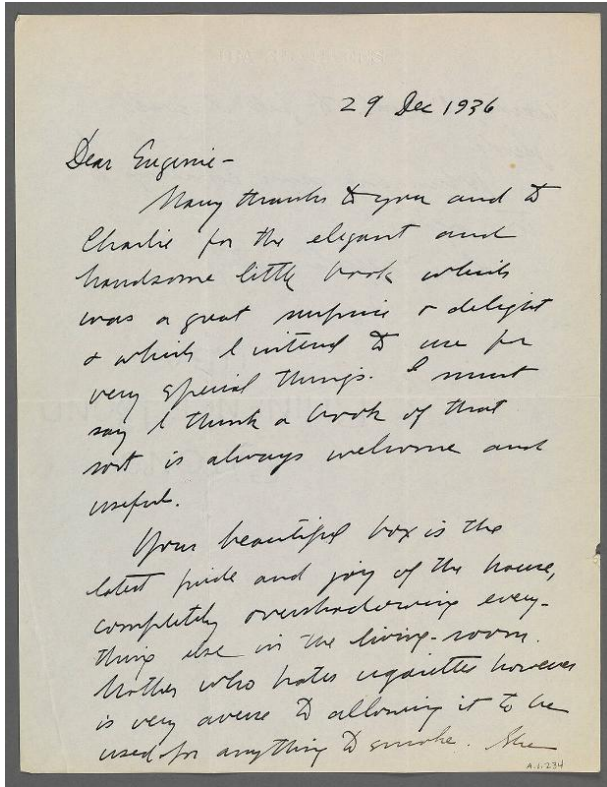 29 Dec 1936
Dear Eugenie -
Many thanks to you and to
Charlie for the elegant and
handsome little book which
was a great surprise & delight
& which I intend to use for
very special things. I must
say I think a book of that
sort is always welcome and
useful.
Your beautiful box is the
latest pride and joy of the house,
completely overshadowing every-
thing else in the living-room.
Mother who hates cigarettes however
is very averse to allowing it to be
used for anything to smoke. She
A.1.234